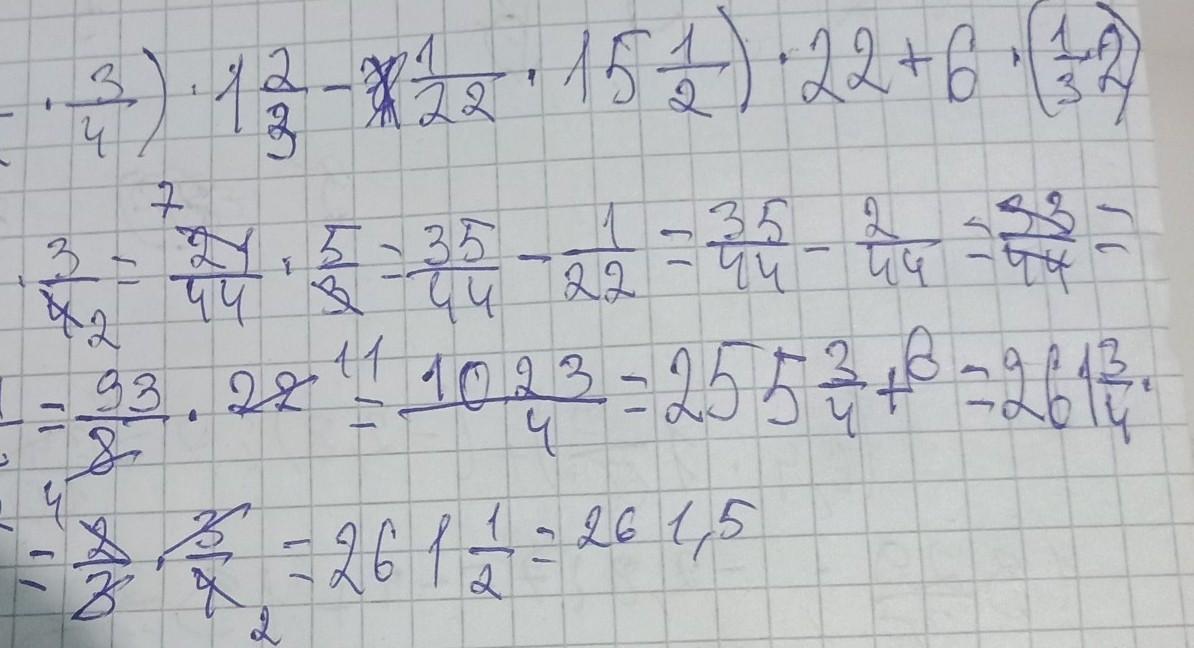 · 3/4) · 1 2/3 - 1/22 · 15 1/2) · 22 + 6 · (1/3 · 2)
· 3/4 2 = 7 21/44 · 5/3 = 35/44 - 1/22 = 35/44 - 2/44 = 33/44 =
= 93/8 4 · 22 11 = 1023/4 = 255 3/4 + 6 = 261 3/4 ·
= 2/3 · 3/4 2 = 261 1/2 = 261,5